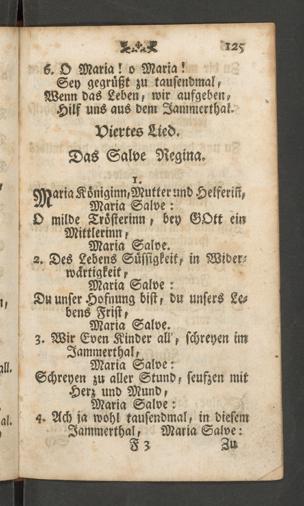 125
6. O Maria! o Maria!
Sey gegrüßt zu tausendmal,
Wenn das Leben, wir aufgeben,
Hilf uns aus dem Jammerthal.
Viertes Lied.
Das Salve Regina.
1.
Maria Königinn, Mutter und Helferin,
Maria Salve:
O milde Trösterinn, bey GOtt ein
Mittlerinn,
Maria Salve.
2. Des Lebens Süssigkeit, in Wider-
wärtigkeit,
Maria Salve:
Du unser Hofnung bist, du unsers Le-
bens Frist,
Maria Salve.
3. Wir Even Kinder all', schreyen im
Jammerthal,
Maria Salve:
Schreyen zu aller Stund, seufzen mit
Herz und Mund,
Maria Salve:
4. Ach ja wohl tausendmal, in diesem
Jammerthal, Maria Salve:
F 3 Zu